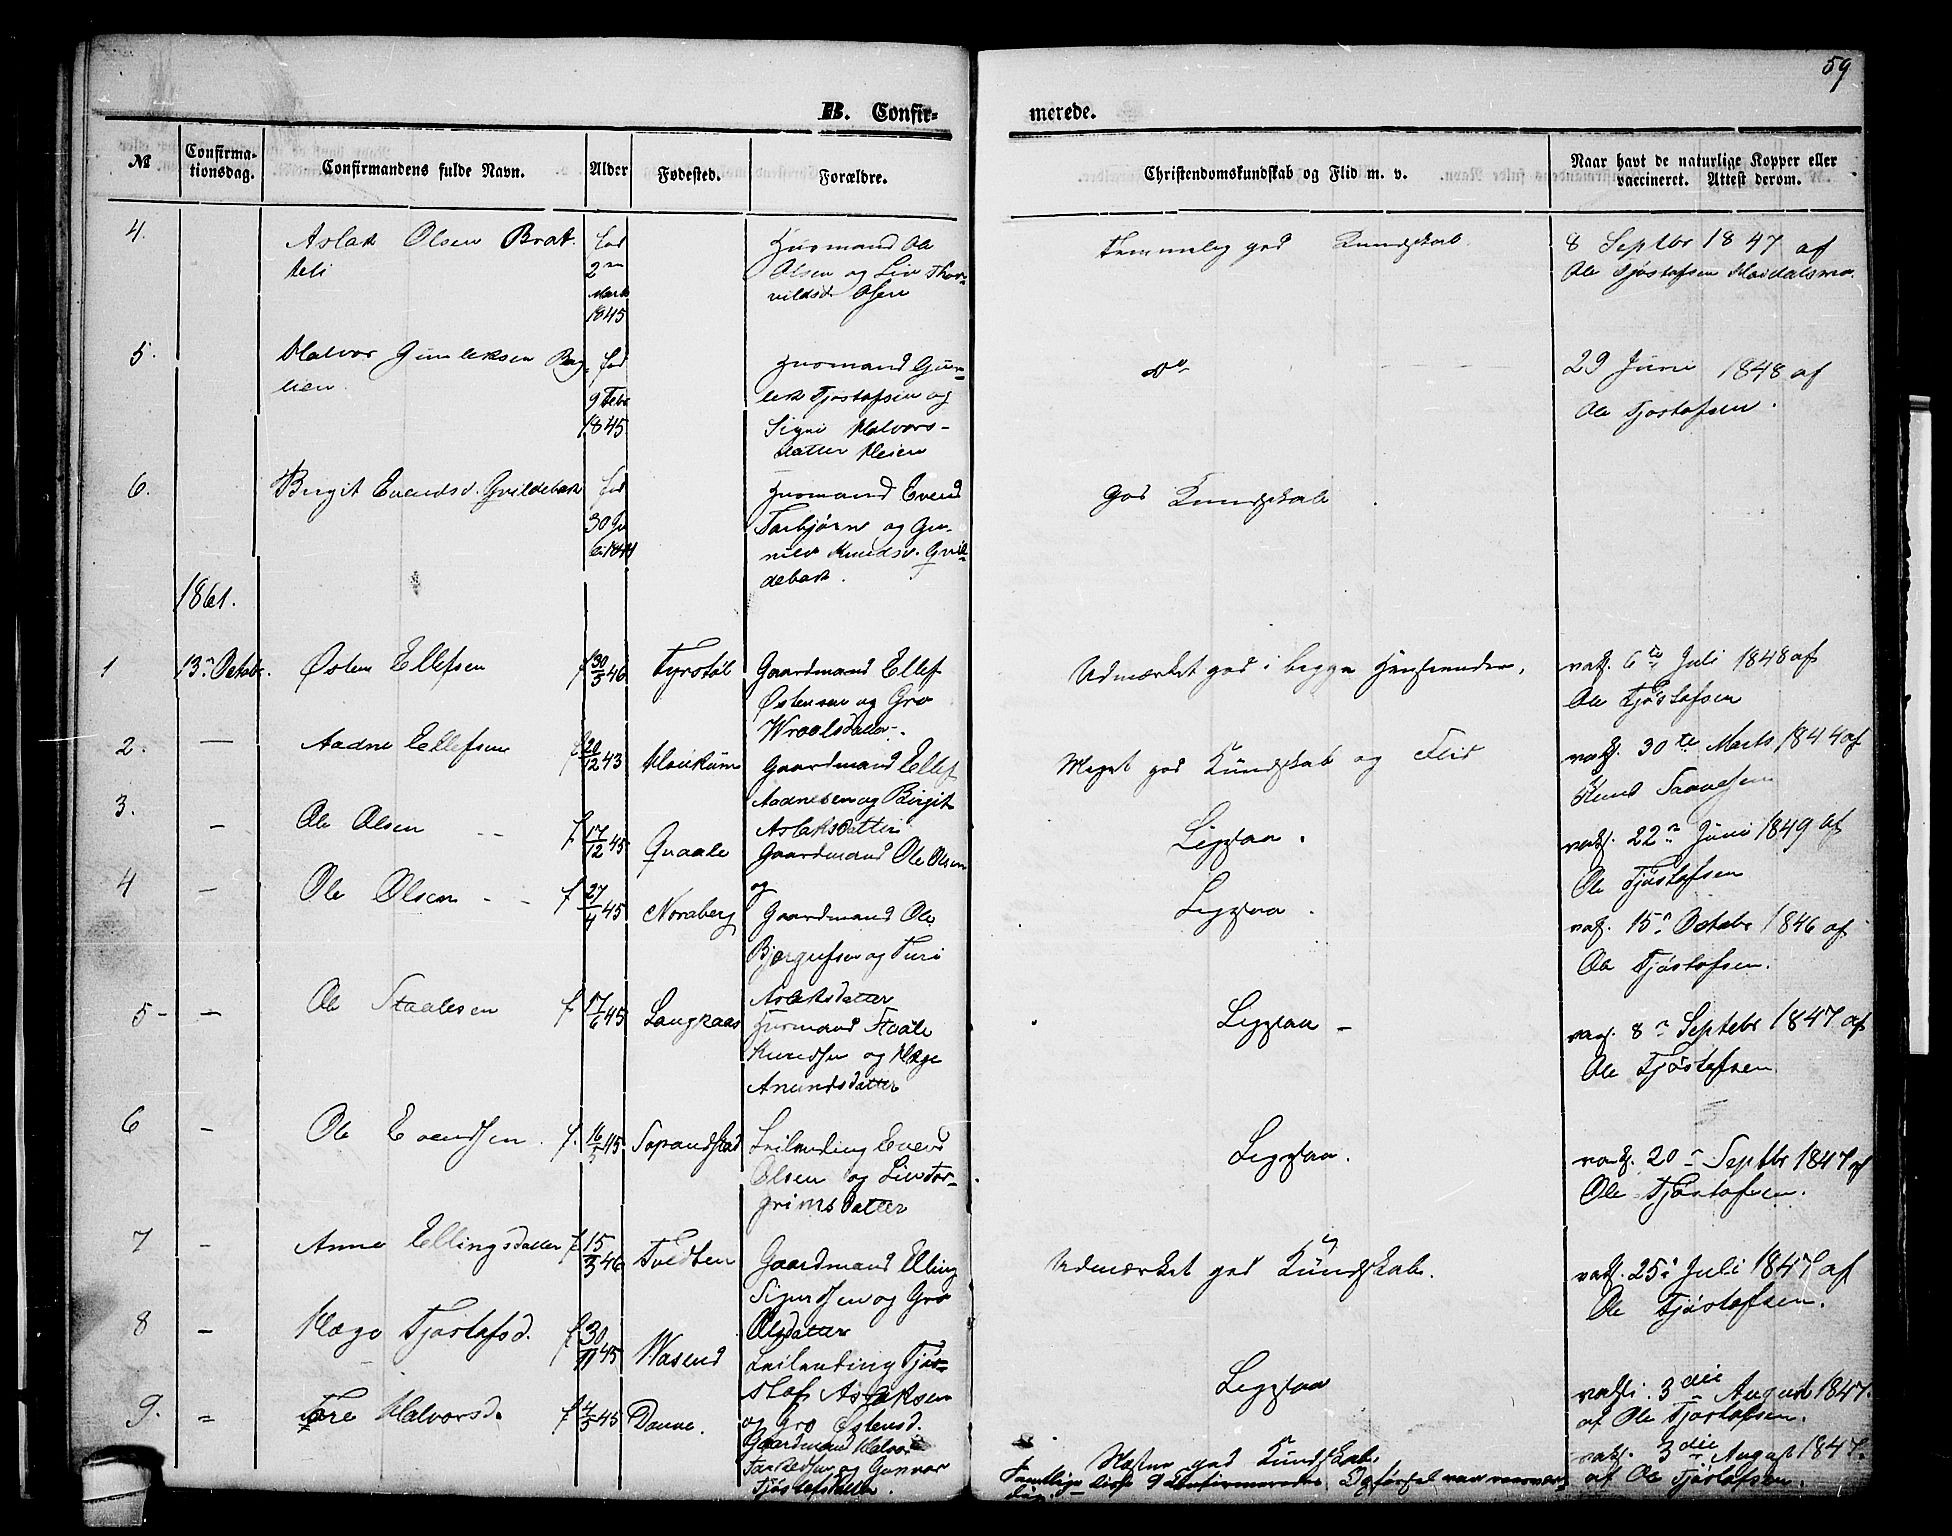 59
B. Confir-
merede.
№
Confirma-
tionsdag.
Confirmandens fulde Navn.
Alder
Fødested.
Forældre.
Christendomskundskab og Flid m. v.
Naar havt de naturlige Kopper eller
vaccineret. Attest derom.
4.
Aslak Olsen Brat
fød
2den
Marts
1845
Huusmand Ole
Olsen og Liv Thor-
vildsd. Osen
Temmelig god Kundskab
8 Septbr 1847 af
Ole Tjøstofsen Høidalsmo
5.
Halvor Gunleksen
fød
9 Febr
1845
Huusmand Gun-
lek Tjøstofsen og
Signi Halvors-
datter
do
29 Juni 1848 af
Ole Tjøstofsen.
6.
Birgit Evendsd. Gvildebak
fød
30
1844
Huusmand Evend
Torbjørns og Gu-
nild Knudsd. Gvil-
debak.
God Kundskab
1861.
1
13n Octobr.
Østen Ellefsen
f 30/3 46
Tyrstøl
Gaardmand Ellef
Østensen og Gro
Wraalsdatter.
Udmærket god i begge Henseender.
vakc. 6te Juli 1848 af
Ole Tjøstofsen
2.
—
Aadne Ellefsen
f 20/12 43
Haukum
Gaardmand Ellef
Aadnesen og Birgit
Aslaksdatter
Meget god Kundskab og Flid
vakc. 30te Marts 1844 af
Knud Saavesen
3.
—
Ole Olsen
f 17/12 45
Qvaale
Gaardmand Ole Olsen
og
Ligesaa.
vakc. 22n Juni 1849 af
Ole Tjøstofsen
4
—
Ole Olsen
f 27/4 45
Noraberg
Gaardmand Ole
Bjørgufsen og Turi
Aslaksdatter
Ligesaa.
vakc. 15n Octobr 1846 af
Ole Tjøstofsen.
5
—
Ole Staalesen
f 17/6 45
Langaas
Huusmand Staale
Knudsen og Hæge
Anundsdatter
Ligesaa
vakc. 8n Septebr 1847 af
Ole Tjøstofsen
6
—
Ole Evendsen
f. 16/3 45
Leilending Evend
Olsen og Liv Tor-
grimsdatter
Ligesaa.
vakc. 20n Septbr 1847 af
Ole Tjøstofsen.
7
—
Anne Ellingsdatter
f 15/3 46
Tvedten
Gaardmand Elling
Sigurdsen og Gro
Olsdatter
Udmærket god Kundskab.
vakc. 25 Juli 1847 af
Ole Tjøstofsen.
8
—
Hæge Tjøstofsd.
f 30/11 45
Wasend
Leilending Tjø-
stof Aslaksen
og Gro Østensd.
Ligesaa
vakc. 3die August 1847.
af Ole Tjøstofsen.
9.
Tore Halvorsd.
f 4/3 45
Gaardmand Halvor
og Gunvor
Tjøstofsdatter.
Næsten god Kundskab.
vakc. 3die August 1847.
af Ole Tjøstofsen.
Samtlige disse 9 Confirmeredes Opførsel